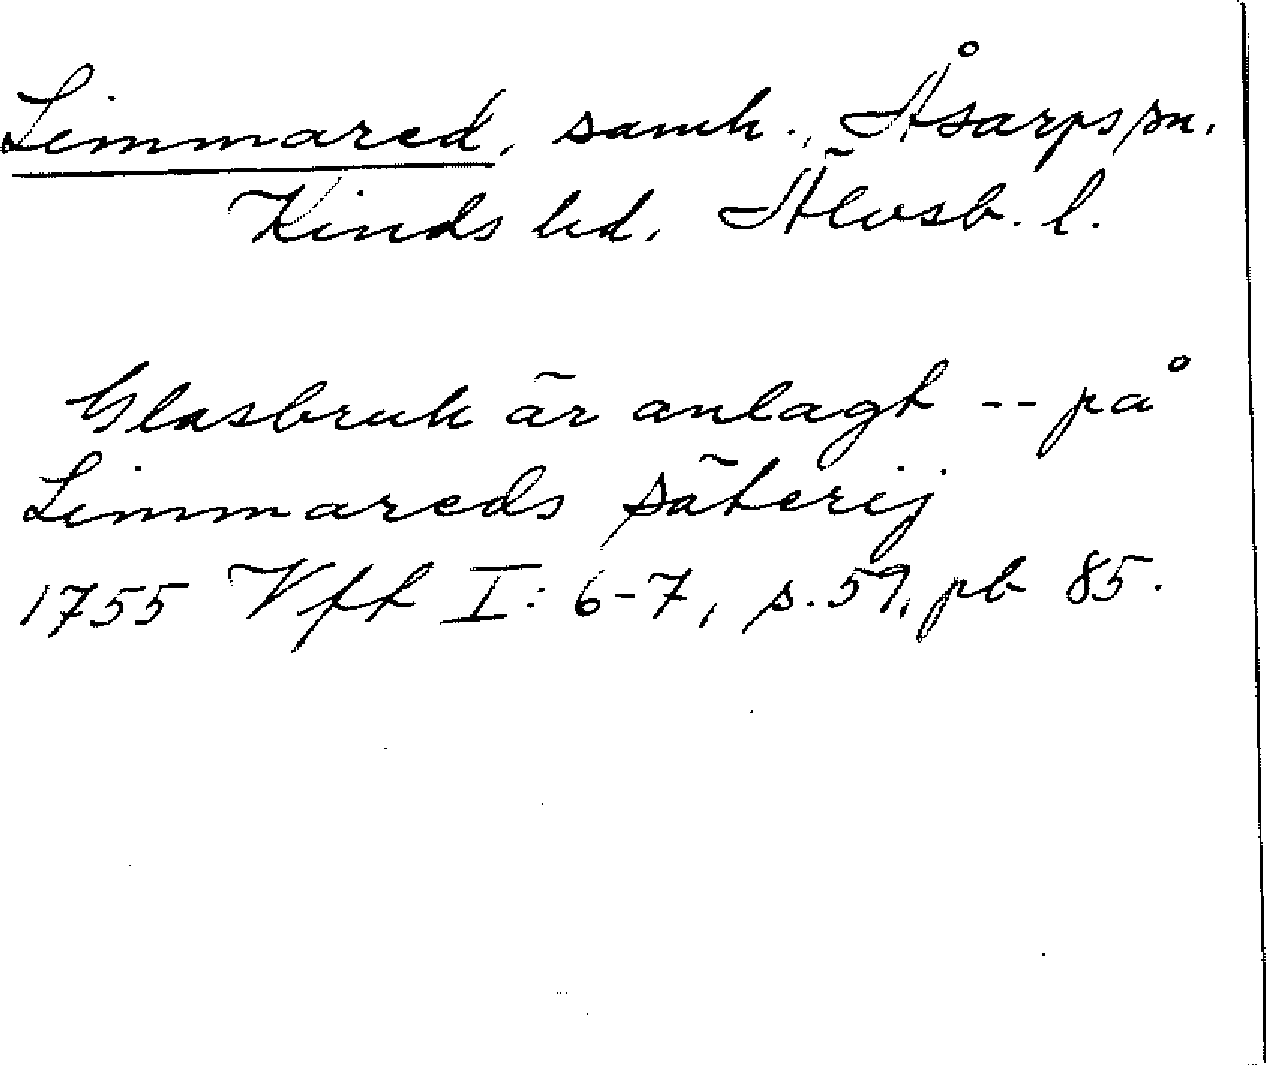 Limmared, samh., Åsarps sn.
Kinds hd, Älvsb. l.
Glasbruk är anlagt -- på
Limmareds säterij
1755 Vff I: 6-7, s. 59, pb 85.